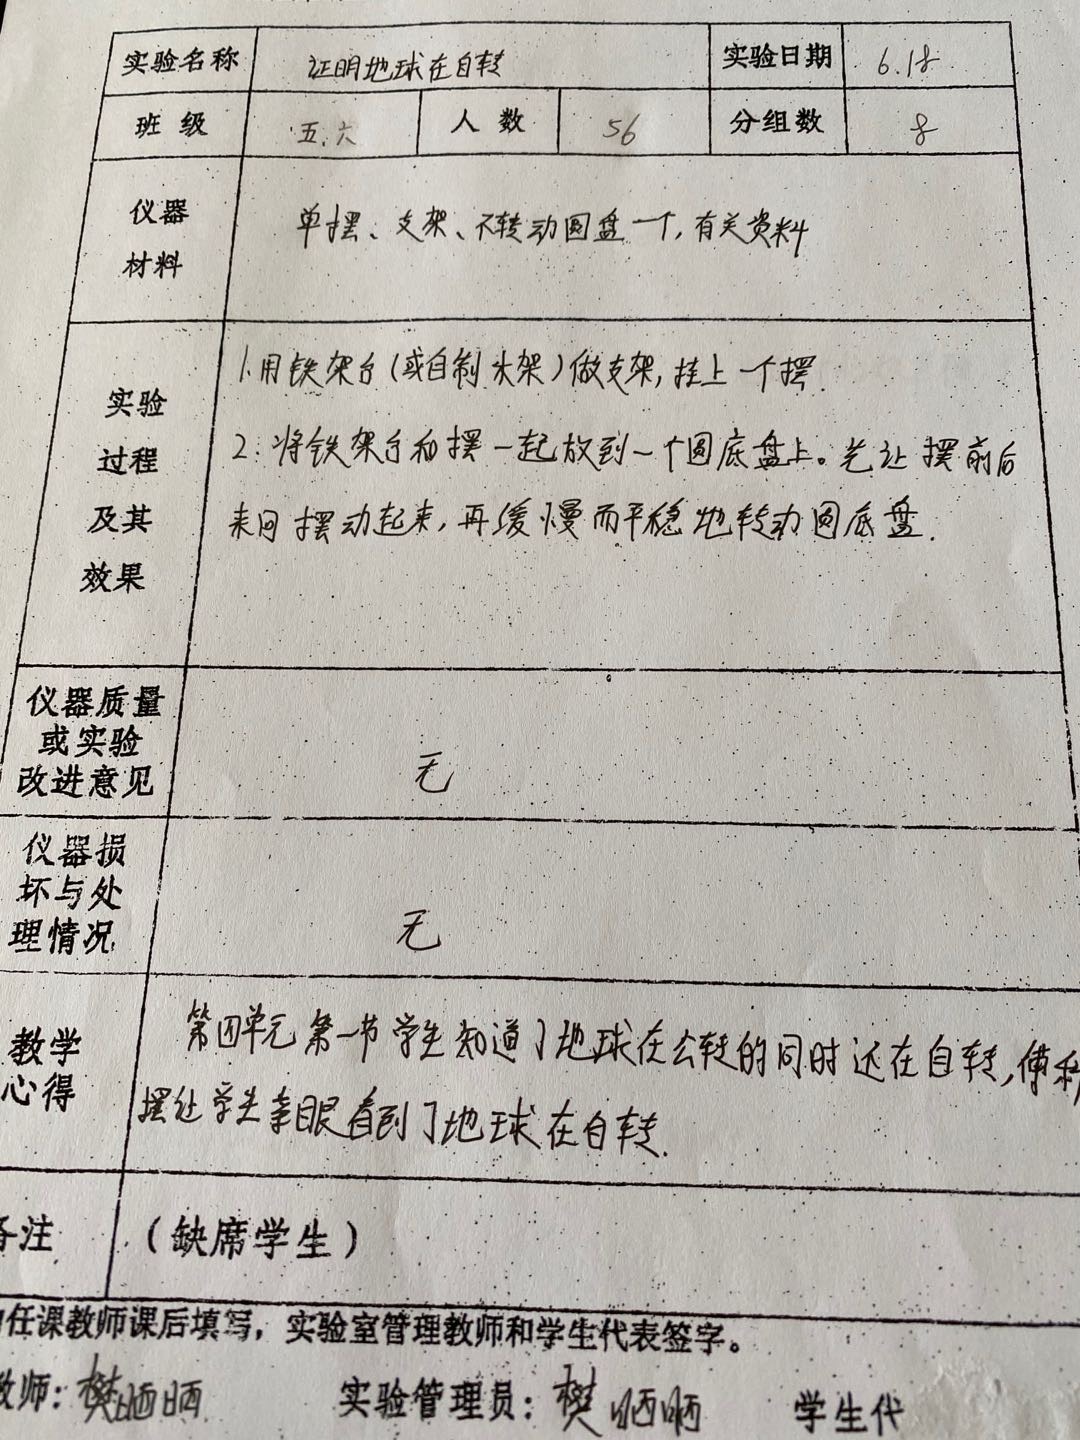 实验名称 证明地球在自转 实验日期 6.18
班级 五.六 人数 56 分组数 8
仪器
材料
单摆、支架、不转动圆盘一个,有关资料
实验
过程
及其
效果
1.用铁架台(或自制木架)做支架,挂上一个摆.
2.将铁架台和摆一起放到一个圆底盘上。先让摆前后
来回摆动起来,再缓慢而平稳地转动圆底盘.
仪器质量
或实验
改进意见
无
仪器损
坏与处
理情况
无
教学
心得
第四单元第一节学生知道了地球在公转的同时还在自转,
摆让学生亲眼看到了地球在自转.
备注 (缺席学生)
任课教师课后填写,实验室管理教师和学生代表签字。
教师:樊晒晒 实验管理员:樊晒晒 学生代